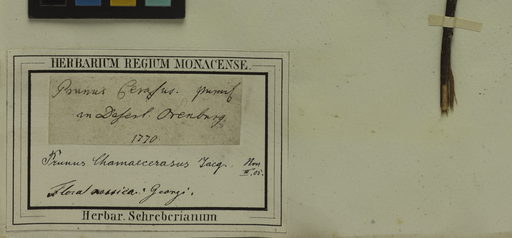 HERBARIUM REGIUM MONACENSE.
Prunus Cerasus.
in Desert. Orenburg.
1770
Prunus Chamaecerasus Jacq.
Flora rossica: Georgi.
Herbar. Schreberianum